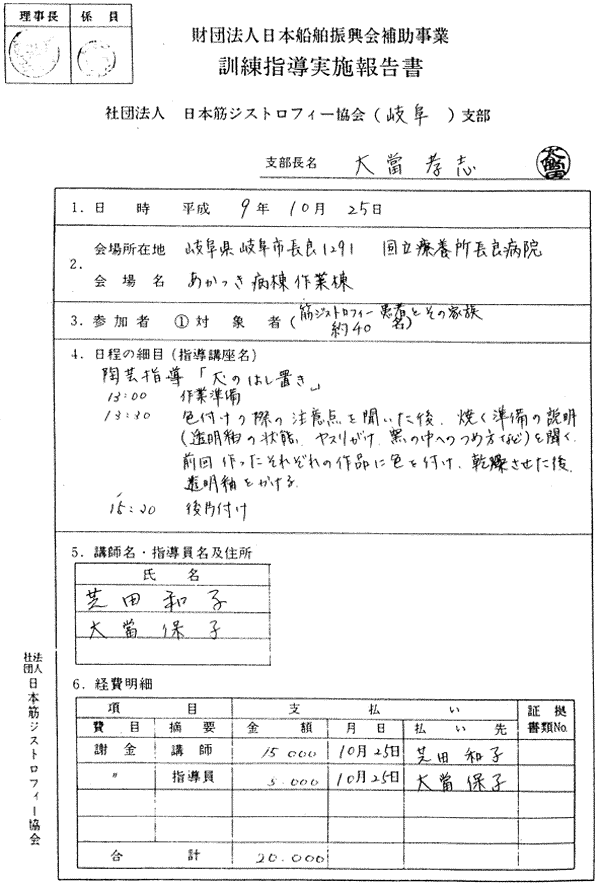 理事長 係員
財団法人日本船舶振興会補助事業
訓練指導実施報告書
社団法人 日本筋ジストロフィー協会(岐阜)支部
支部長名 大當孝志
1.日 時 平成 9年 10月 25日
2.会場所在地 岐阜県岐阜市長良1291 国立療養所長良病院
会場名 あかつき病棟作業棟
3.参加者 ①対象者(筋ジストロフィー患者とその家族
約40名)
4.日程の細目(指導講座名)
陶芸指導「犬のはし置き」
13:00 作業準備
13:30 色付けの際の注意点を聞いた後、焼く準備の説明
(透明釉の状態、ヤスリがけ、窯の中へのつめ方など)を聞く。
前回作ったそれぞれの作品に色を付け、乾燥させた後、
透明釉をかける。
15:20 後片付け
5.講師名・指導員名及住所
氏 名
芝田 和子
大當 保子
6.経費明細
項 目 支 払 い 証拠書類No.
費目 摘要 金額 月日 払い先
謝金 講師 15000 10月25日 芝田 和子
〃 指導員 5.000 10月25日 大當保子
合 計 20.000
社団法人 日本筋ジストロフィー協会